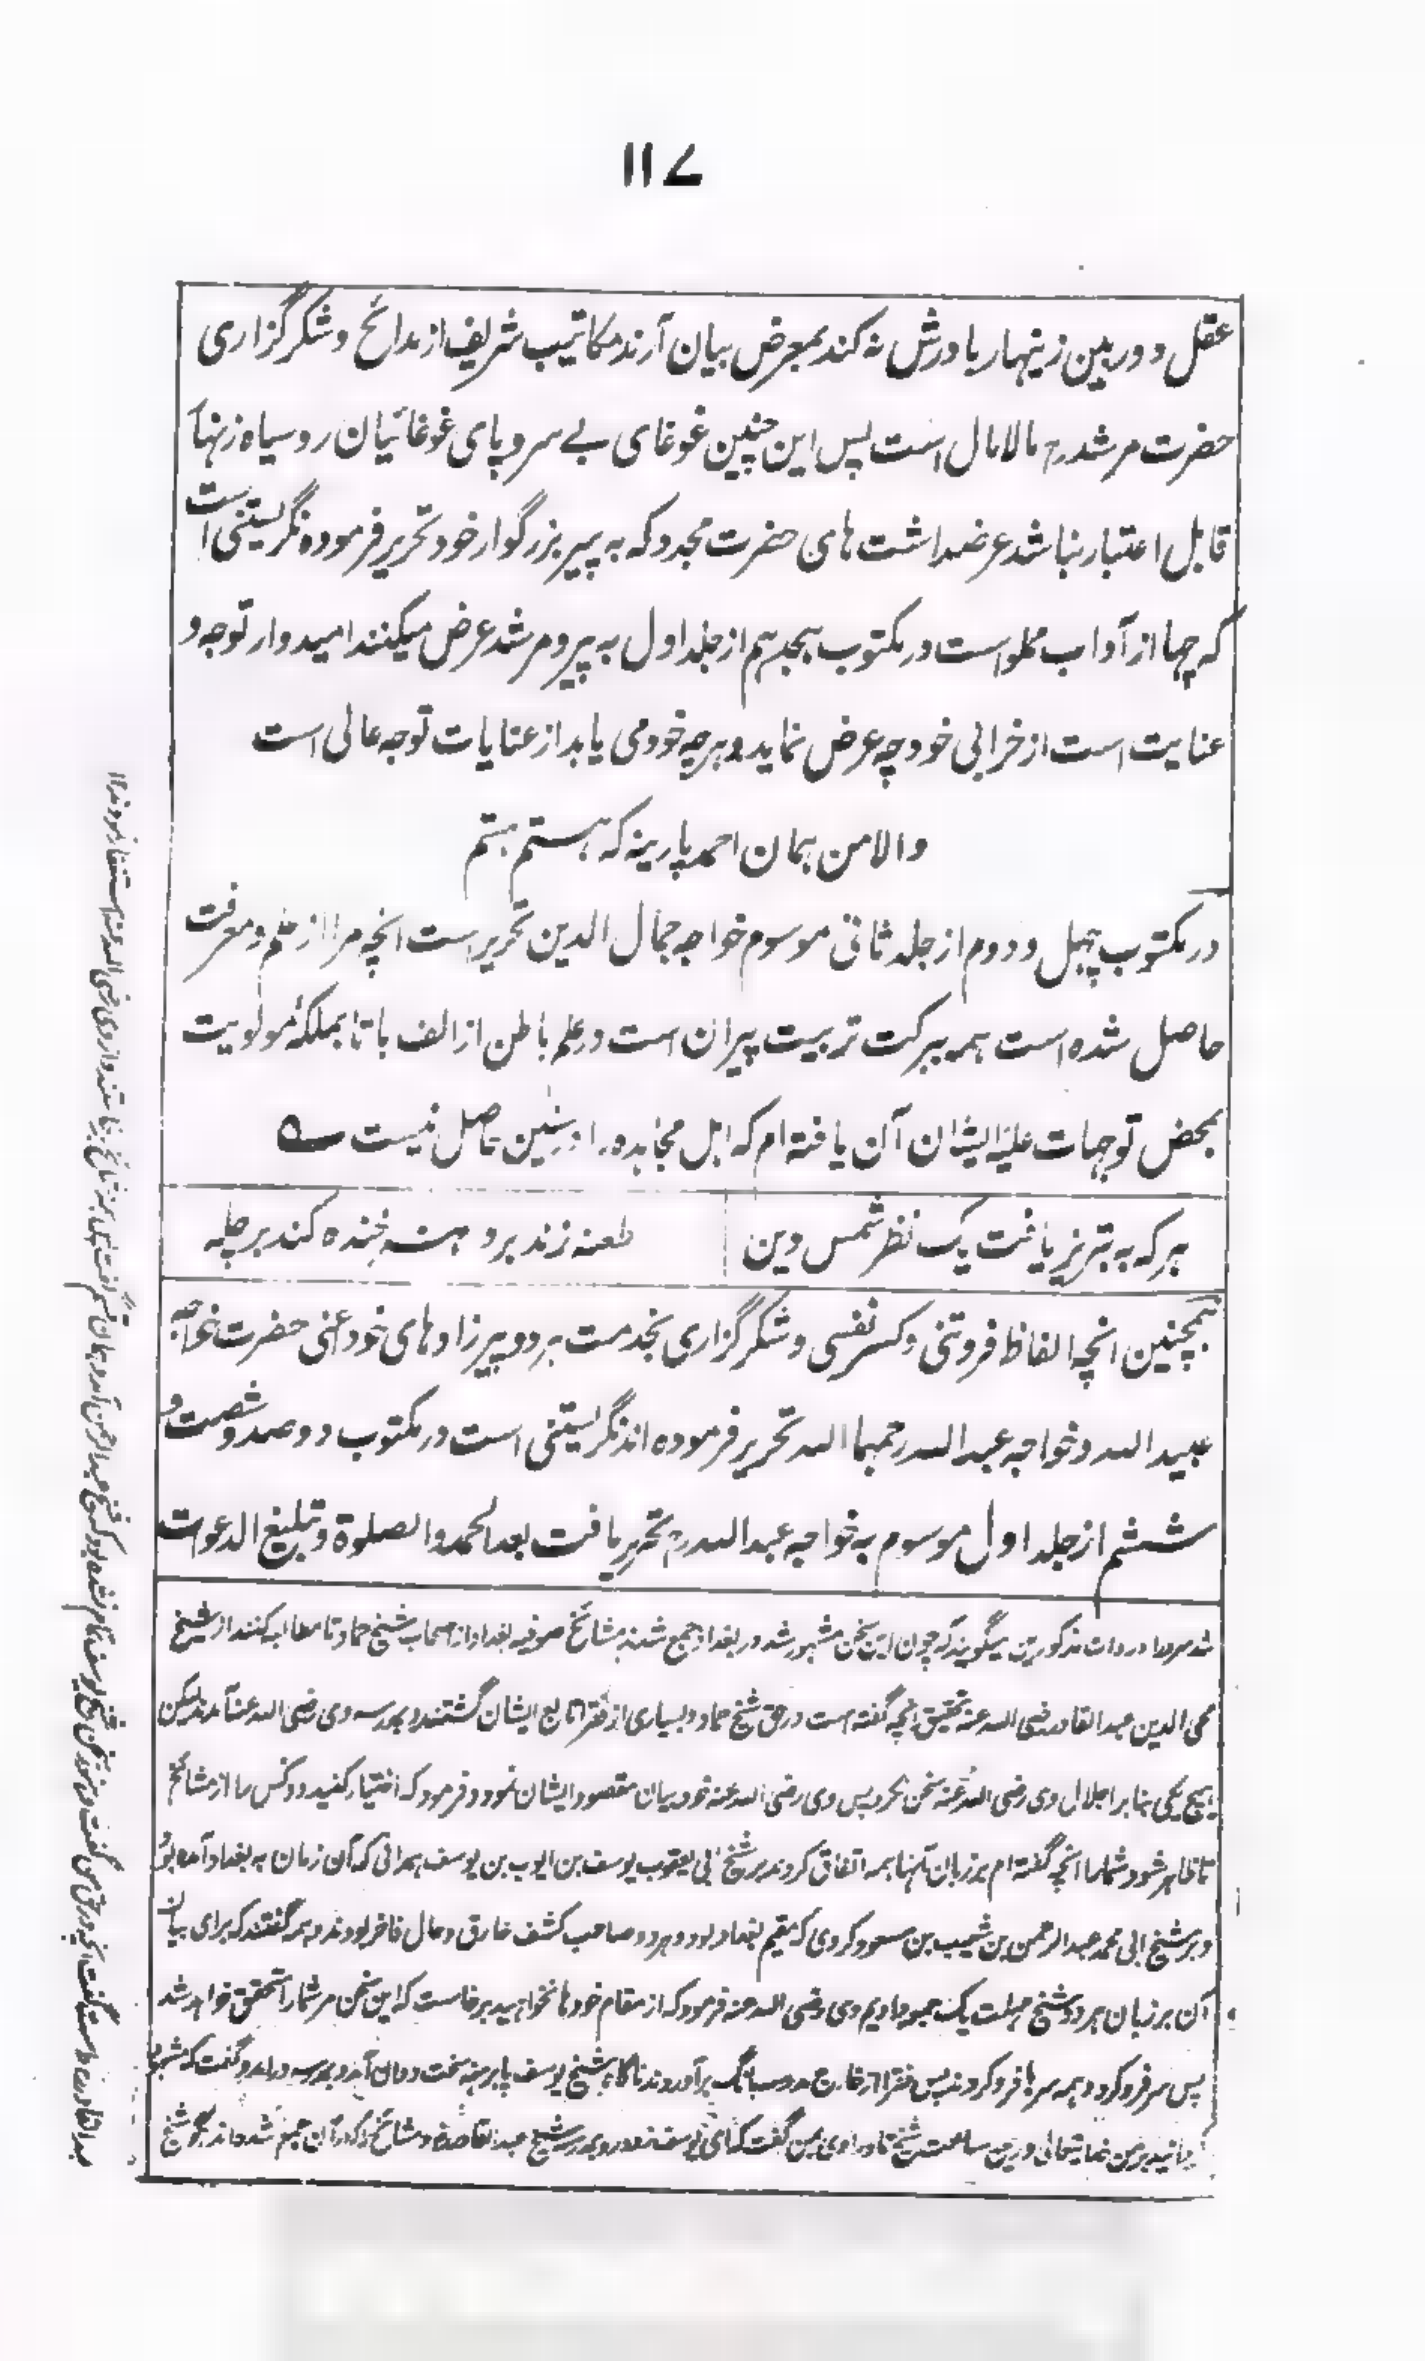 ۱۱۷
عقل دوربین زینهار باورش نه کند بمعرض بیان آرند مکاتیب شریف از مدائح و شکرگزاری
حضرت مرشد رح مالامال است پس این چنین غوغای بے سروپای غوغائیان روسیاه زنهار
قابل اعتبار نباشد عرضداشت های حضرت مجدد که به پیر بزرگوار خود تحریر فرموده نگریستنی است
که چها از آداب مملو است در مکتوب هیجدهم از جلد اول به پیر و مرشد عرض میکنند امیدوار توجه و
عنایت است از خرابی خود چه عرض نماید و هرچه خود می یابد از عنایات توجه عالی است
والا من همان احمد پارینه که هستم هستم
در مکتوب چهل و دوم از جلد ثانی موسوم خواجه جمال الدین تحریر است انچه مرا از علم و معرفت
حاصل شده است همه ببرکت تربیت پیران است در علم باطن از الف با تا بملکهٔ مولویت
بمحض توجهات علیهٔ ایشان آن یافته ام که اهل مجاهده را در سنین حاصل نیست ؎
هر که به تبریز یافت یک نظر شمس دین
طعنه زند بر دهه خنده کند بر چله
همچنین انچه الفاظ فروتنی و کسر نفسی و شکرگزاری بخدمت هردو پیرزاده های خود اعنی حضرت خواجه
عبید الله و خواجه عبد الله رحمهما الله تحریر فرموده اند نگریستنی است در مکتوب دو صد و شصت و
ششم از جلد اول موسوم به خواجه عبد الله رح تحریر یافت بعد الحمد والصلوة و تبلیغ الدعوات
مذکورین میگویند که چون این سخن مشهور شد در بغداد جمع شدند مشائخ صوفیه بغداد از اصحاب شیخ حماد تا مطالبه کنند از شیخ
محی الدین عبد القادر رضی الله عنه تحقیق انچه گفته است در حق شیخ حماد و بسیاری از فقرا تابع ایشان گشتند و بمدرسه وی رضی الله عنه آمدند لیکن
هیچ یکی بنابر اجلال وی رضی الله عنه سخن نکرد پس وی رضی الله عنه خود بیان مقصود ایشان نمود و فرمود که اختیار کنید دو کس را از مشائخ
تا ظاهر شود شما را انچه گفته ام بر زبان آنها همه اتفاق کردند بر شیخ ابی یعقوب یوسف بن ایوب بن یوسف همدانی که آن زمان به بغداد آمده بود
و بر شیخ ابی محمد عبد الرحمن بن شعیب بن مسعود کردی که مقیم بغداد بود و هردو صاحب کشف خارق و حال فاخر بودند و همه گفتند که برای بیان
آن بر زبان هر دو شیخ مهلت یک جمعه دادیم وی رضی الله عنه فرمود که از مقام خود ها نخواهید برخاست که این سخن مر شما را تحقق خواهد شد
پس سر فرو کرد و همه سرها فرو کردند پس فقرا از خارج مدرسه بانگ برآوردند ناگاه شیخ یوسف پابرهنه سخت دوان آمد و بمدرسه درآمد و گفت که
من خدایتعالی درین ساعت شیخ حماد را وی بمن گفت که ای یوسف زود رو بمدرسه شیخ عبد القادر و مشائخ را که در آن جمع شده اند بگو شیخ
عبد القادر راست گفت انچه در حق من گفت و هنوز سخن شیخ یوسف تمام نشده بود که شیخ عبد الرحمن آمد و همان قسم گفت